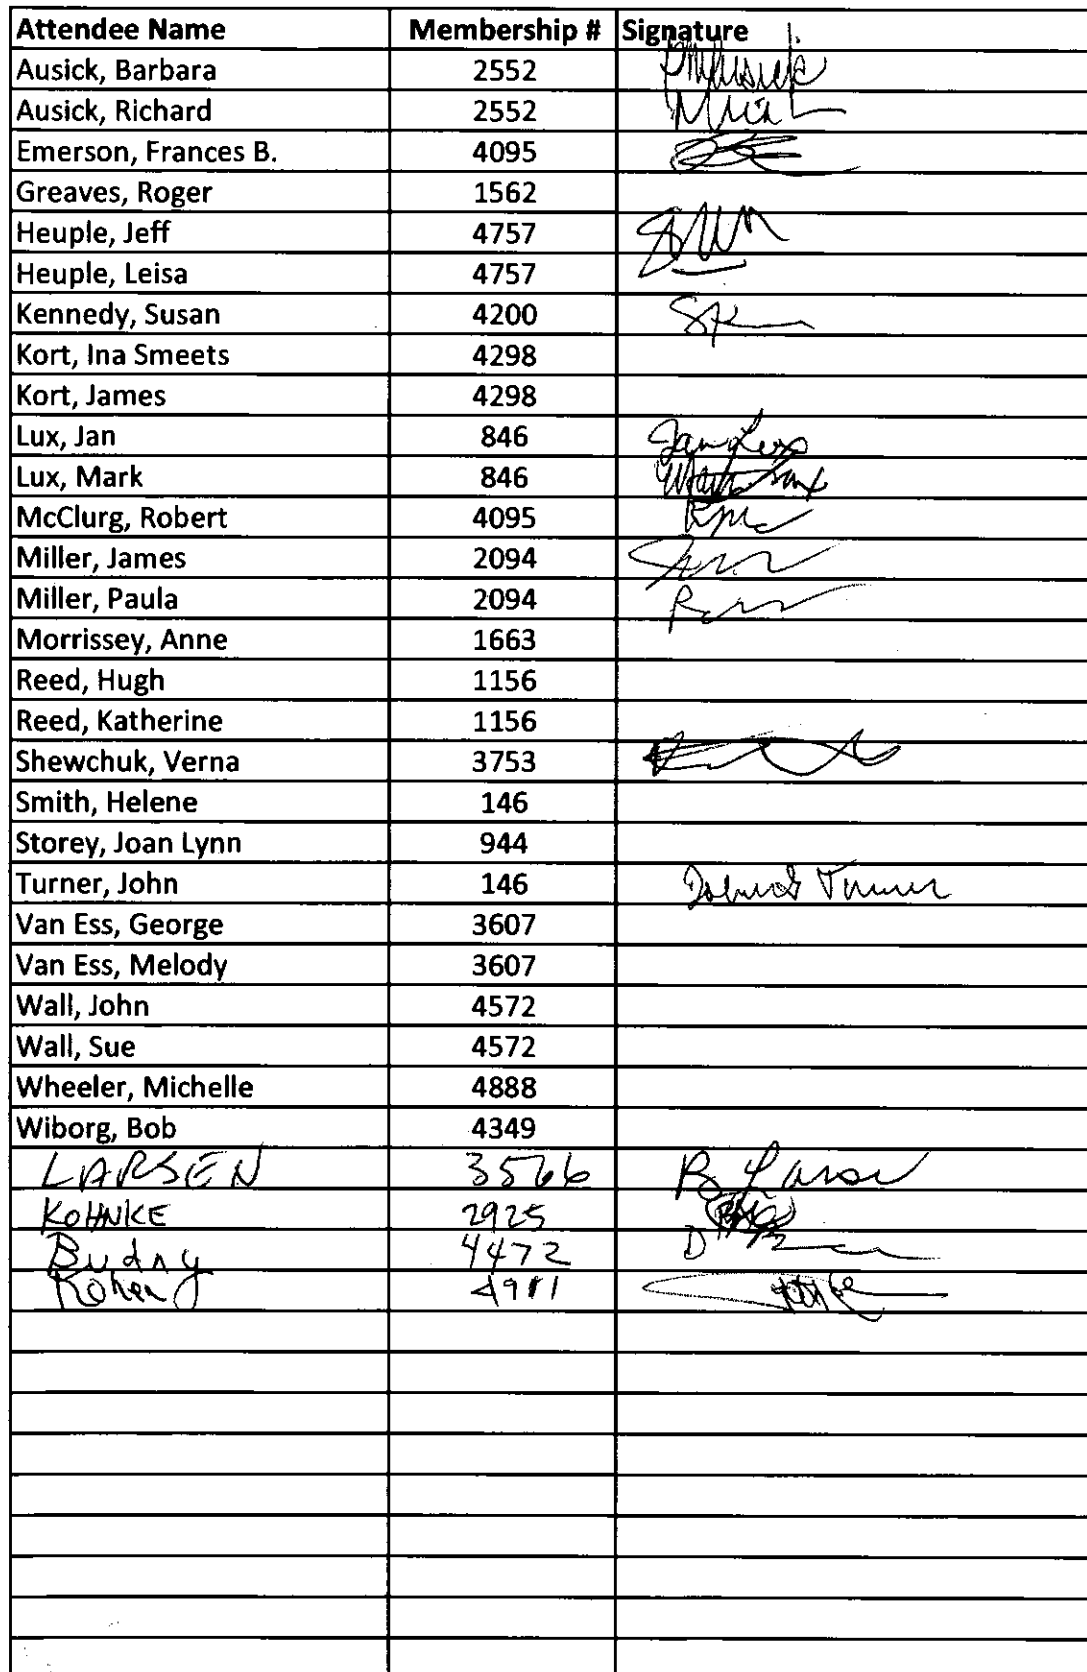 Attendee Name Membership # Signature
Ausick, Barbara 2552
Ausick, Richard 2552
Emerson, Frances B. 4095
Greaves, Roger 1562
Heuple, Jeff 4757
Heuple, Leisa 4757
Kennedy, Susan 4200
Kort, Ina Smeets 4298
Kort, James 4298
Lux, Jan 846 Jan Lux
Lux, Mark 846
McClurg, Robert 4095
Miller, James 2094
Miller, Paula 2094
Morrissey, Anne 1663
Reed, Hugh 1156
Reed, Katherine 1156
Shewchuk, Verna 3753
Smith, Helene 146
Storey, Joan Lynn 944
Turner, John 146 Turner
Van Ess, George 3607
Van Ess, Melody 3607
Wall, John 4572
Wall, Sue 4572
Wheeler, Michelle 4888
Wiborg, Bob 4349
LARSEN 3566 B Larsen
KOHNKE 2925
Budny 4472